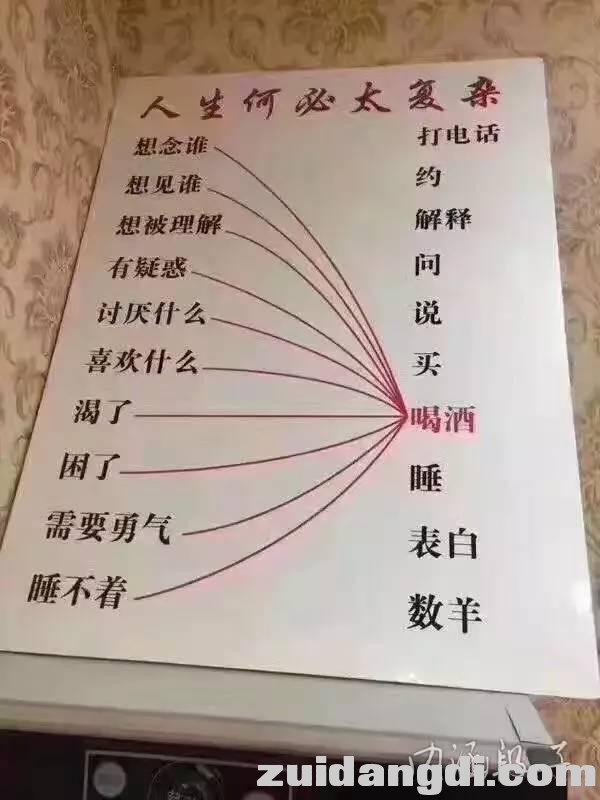 人生何必太复杂
想念谁 打电话
想见谁 约
想被理解 解释
有疑惑 问
讨厌什么 说
喜欢什么 买
渴了 喝酒
困了 睡
需要勇气 表白
睡不着 数羊
内涵段子
zuidangdi.com